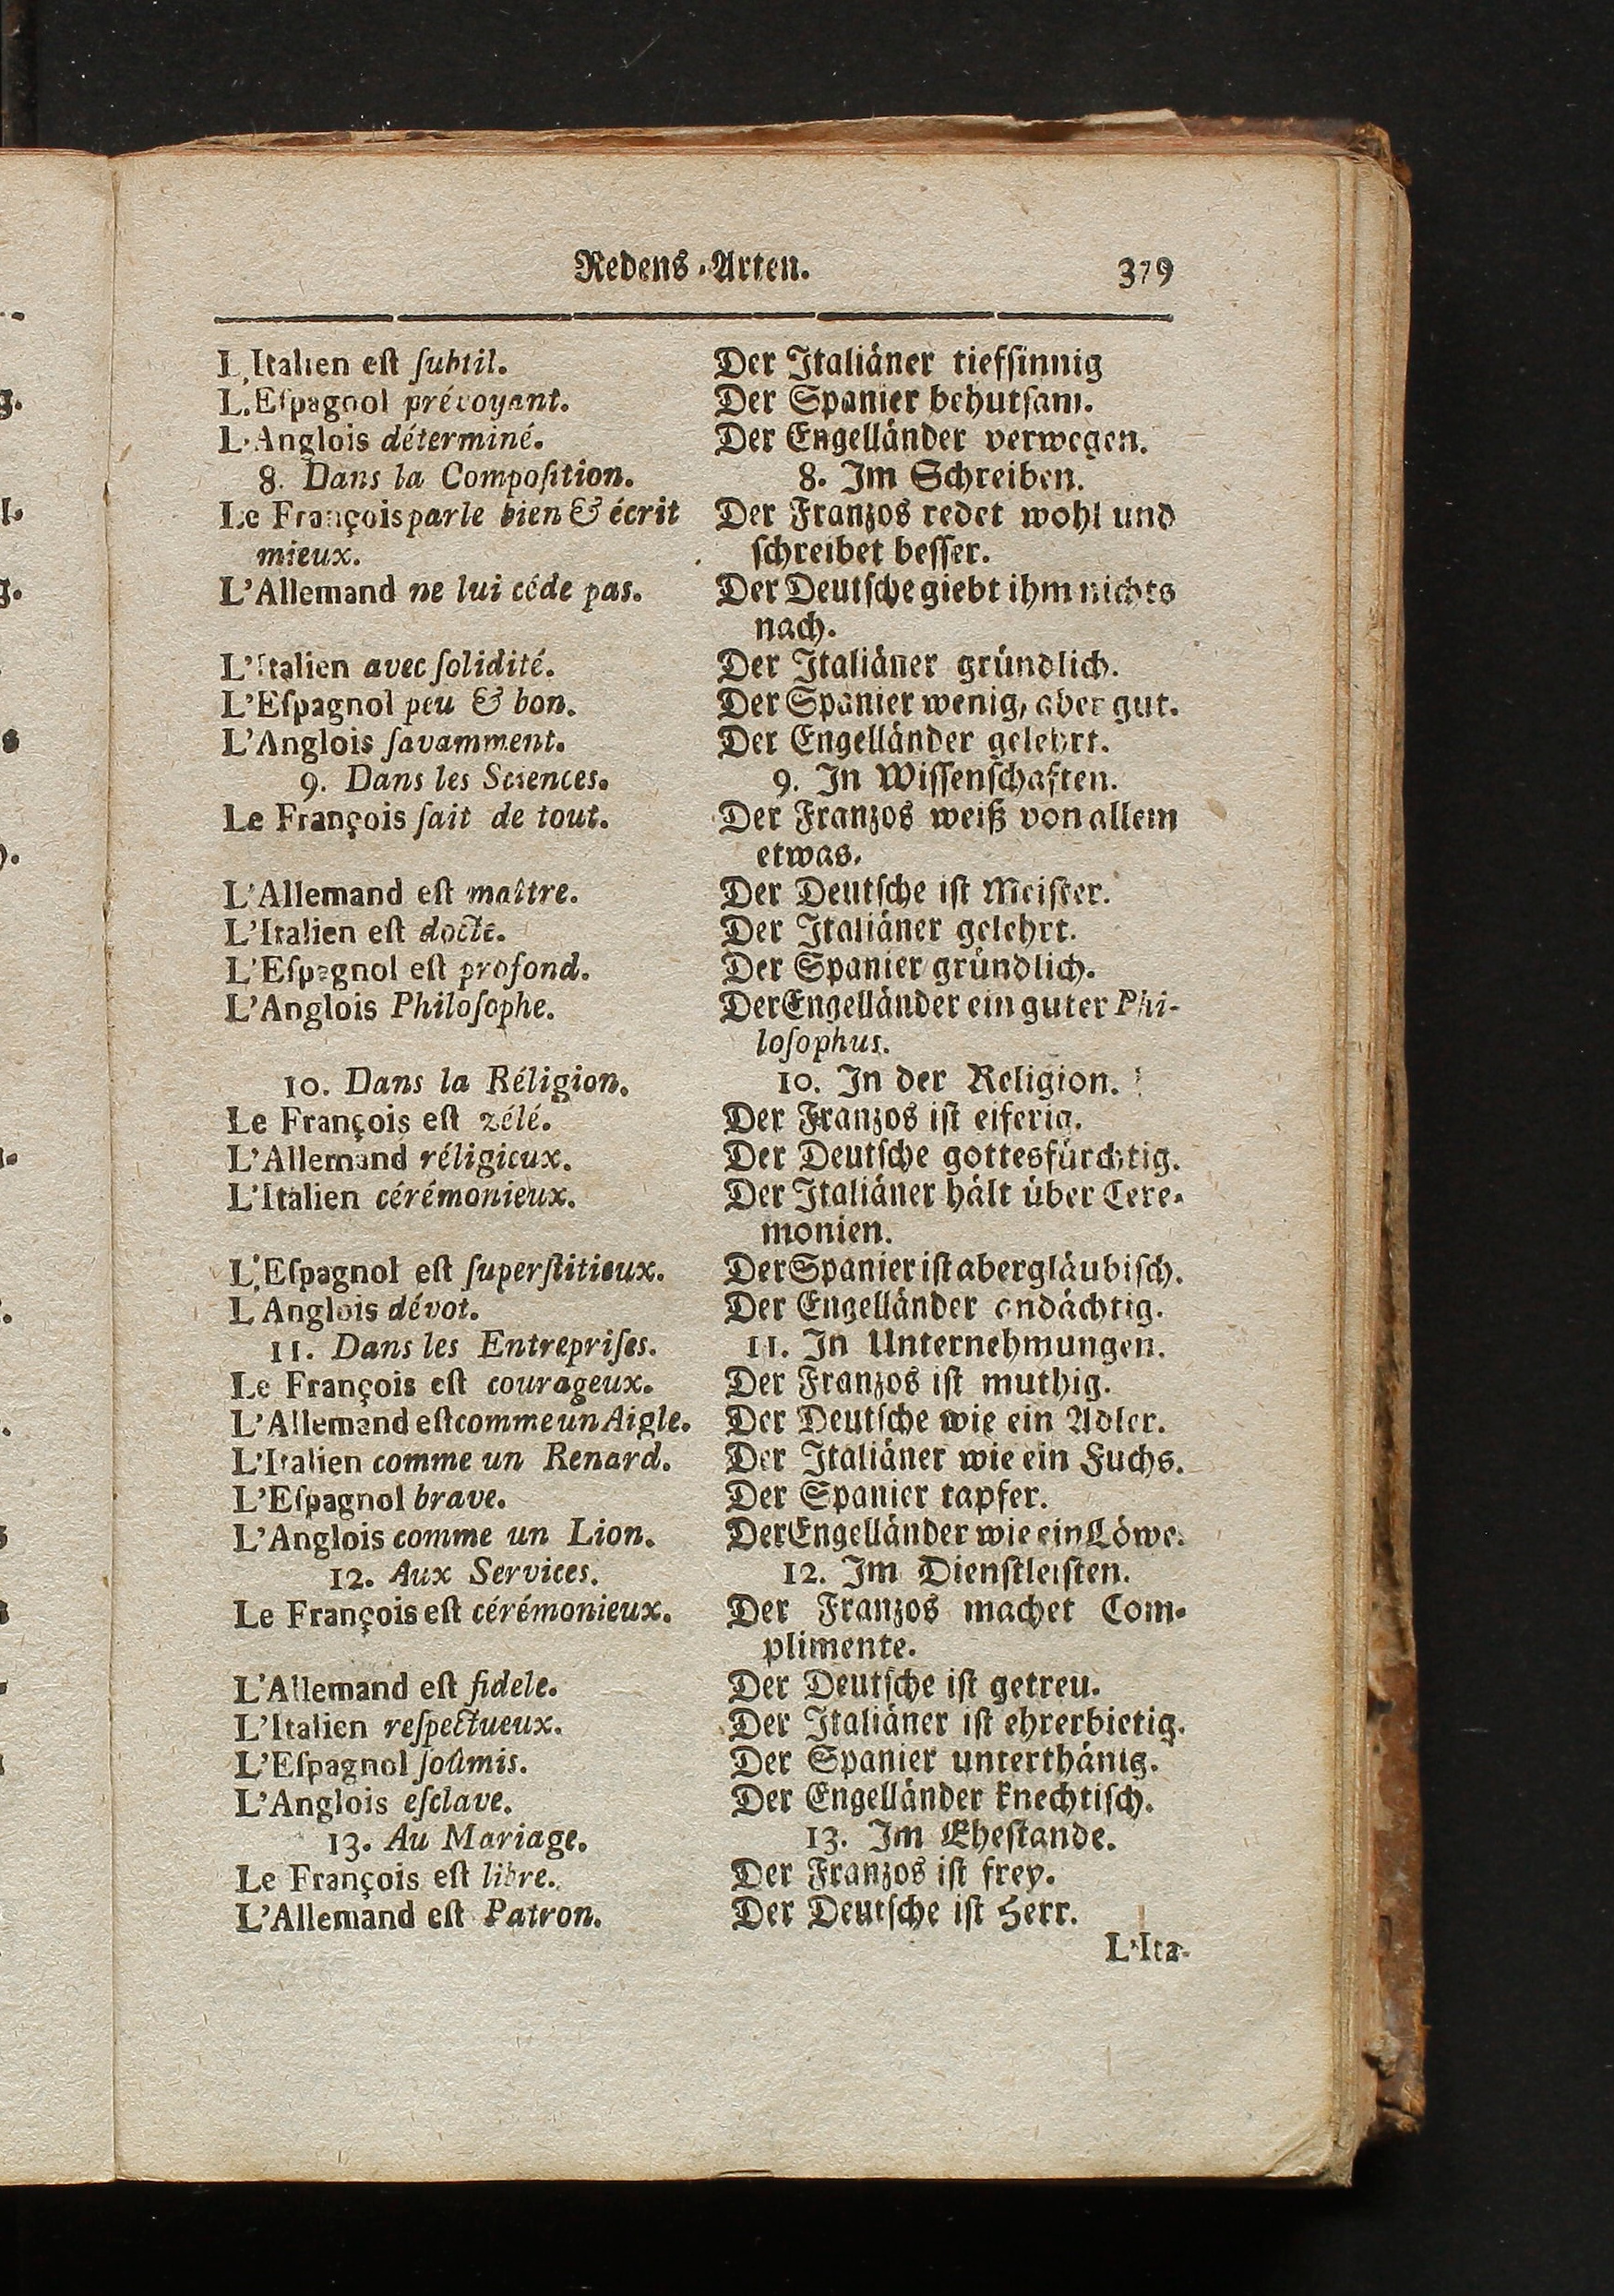 Redens-Arten. 379
L'Italien eſt ſubtil.
L'Eſpagnol prévoyant.
L'Anglois déterminé.
8. Dans la Compoſition.
Le François parle bien & écrit
mieux.
L'Allemand ne lui céde pas.
L'Italien avec ſolidité.
L'Eſpagnol peu & bon.
L'Anglois ſavamment.
9. Dans les Sciences.
Le François ſait de tout.
L'Allemand eſt maître.
L'Italien eſt docte.
L'Eſpagnol eſt profond.
L'Anglois Philoſophe.
10. Dans la Réligion.
Le François eſt zélé.
L'Allemand réligieux.
L'Italien cérémonieux.
L'Eſpagnol eſt ſuperſtitieux.
L'Anglois dévot.
11. Dans les Entrepriſes.
Le François eſt courageux.
L'Allemand eſt comme un Aigle.
L'Italien comme un Renard.
L'Eſpagnol brave.
L'Anglois comme un Lion.
12. Aux Services.
Le François eſt cérémonieux.
L'Allemand eſt fidele.
L'Italien reſpectueux.
L'Eſpagnol ſoûmis.
L'Anglois eſclave.
13. Au Mariage.
Le François eſt libre.
L'Allemand eſt Patron.
Der Italiäner tiefſinnig
Der Spanier behutſam.
Der Engelländer verwegen.
8. Im Schreiben.
Der Franzos redet wohl und
ſchreibet beſſer.
Der Deutſche giebt ihm nichts
nach.
Der Italiäner gründlich.
Der Spanier wenig, aber gut.
Der Engelländer gelehrt.
9. In Wiſſenſchaften.
Der Franzos weiß von allem
etwas.
Der Deutſche iſt Meiſter.
Der Italiäner gelehrt.
Der Spanier gründlich.
Der Engelländer ein guter Phi-
loſophus.
10. In der Religion.
Der Franzos iſt eiferig.
Der Deutſche gottesfürchtig.
Der Italiäner hält über Cere-
monien.
Der Spanier iſt abergläubiſch.
Der Engelländer andächtig.
11. In Unternehmungen.
Der Franzos iſt muthig.
Der Deutſche wie ein Adler.
Der Italiäner wie ein Fuchs.
Der Spanier tapfer.
Der Engelländer wie ein Löwe.
12. Im Dienſtleiſten.
Der Franzos machet Com-
plimente.
Der Deutſche iſt getreu.
Der Italiäner iſt ehrerbietig.
Der Spanier unterthänig.
Der Engelländer knechtiſch.
13. Im Eheſtande.
Der Franzos iſt frey.
Der Deutſche iſt Herr.
L'Ita-